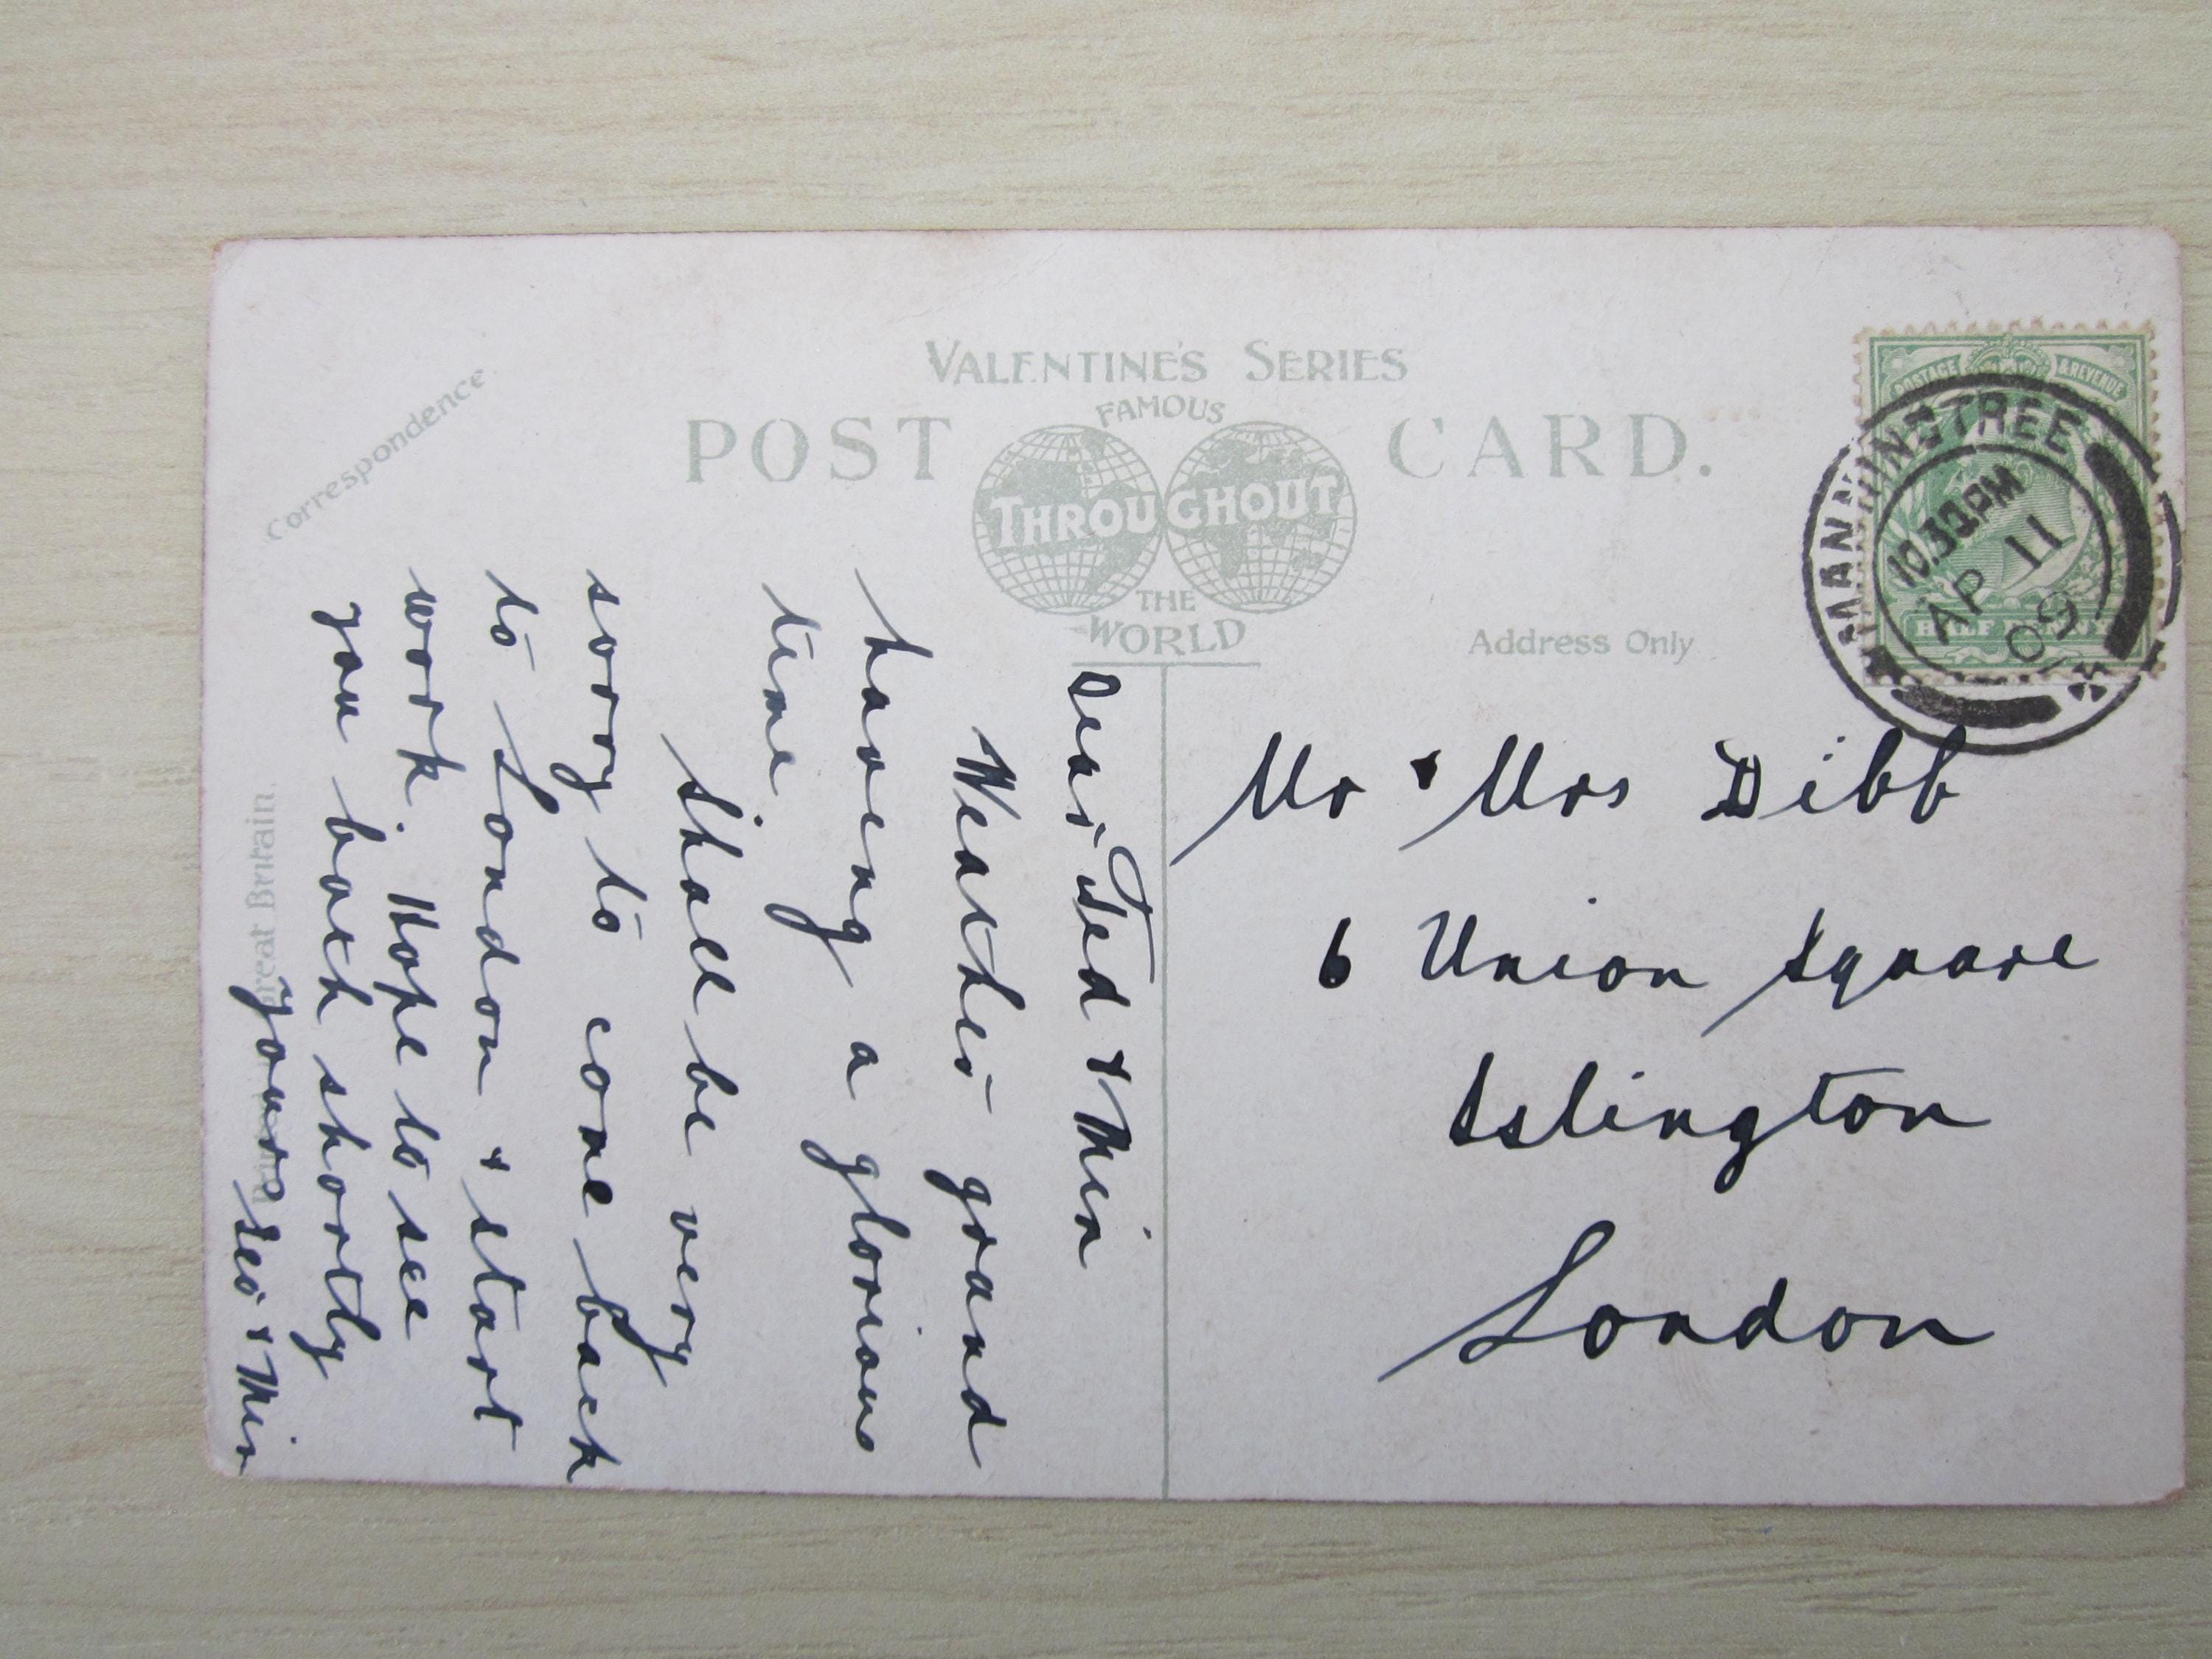 VALENTINE'S SERIES
POST CARD.
FAMOUS
THROUGHOUT
THE
WORLD
Correspondence.
Address Only
POSTAGE & REVENUE
MANNINGTREE
10.30PM
AP 11
09
Mr & Mrs Dibb
6 Union Square
Islington
London
Dear Ted & Min
Weather grand
having a glorious
time.
Shall be very
sorry to come back
to London & start
work. Hope to see
you both shortly
yours & Min
Great Britain.